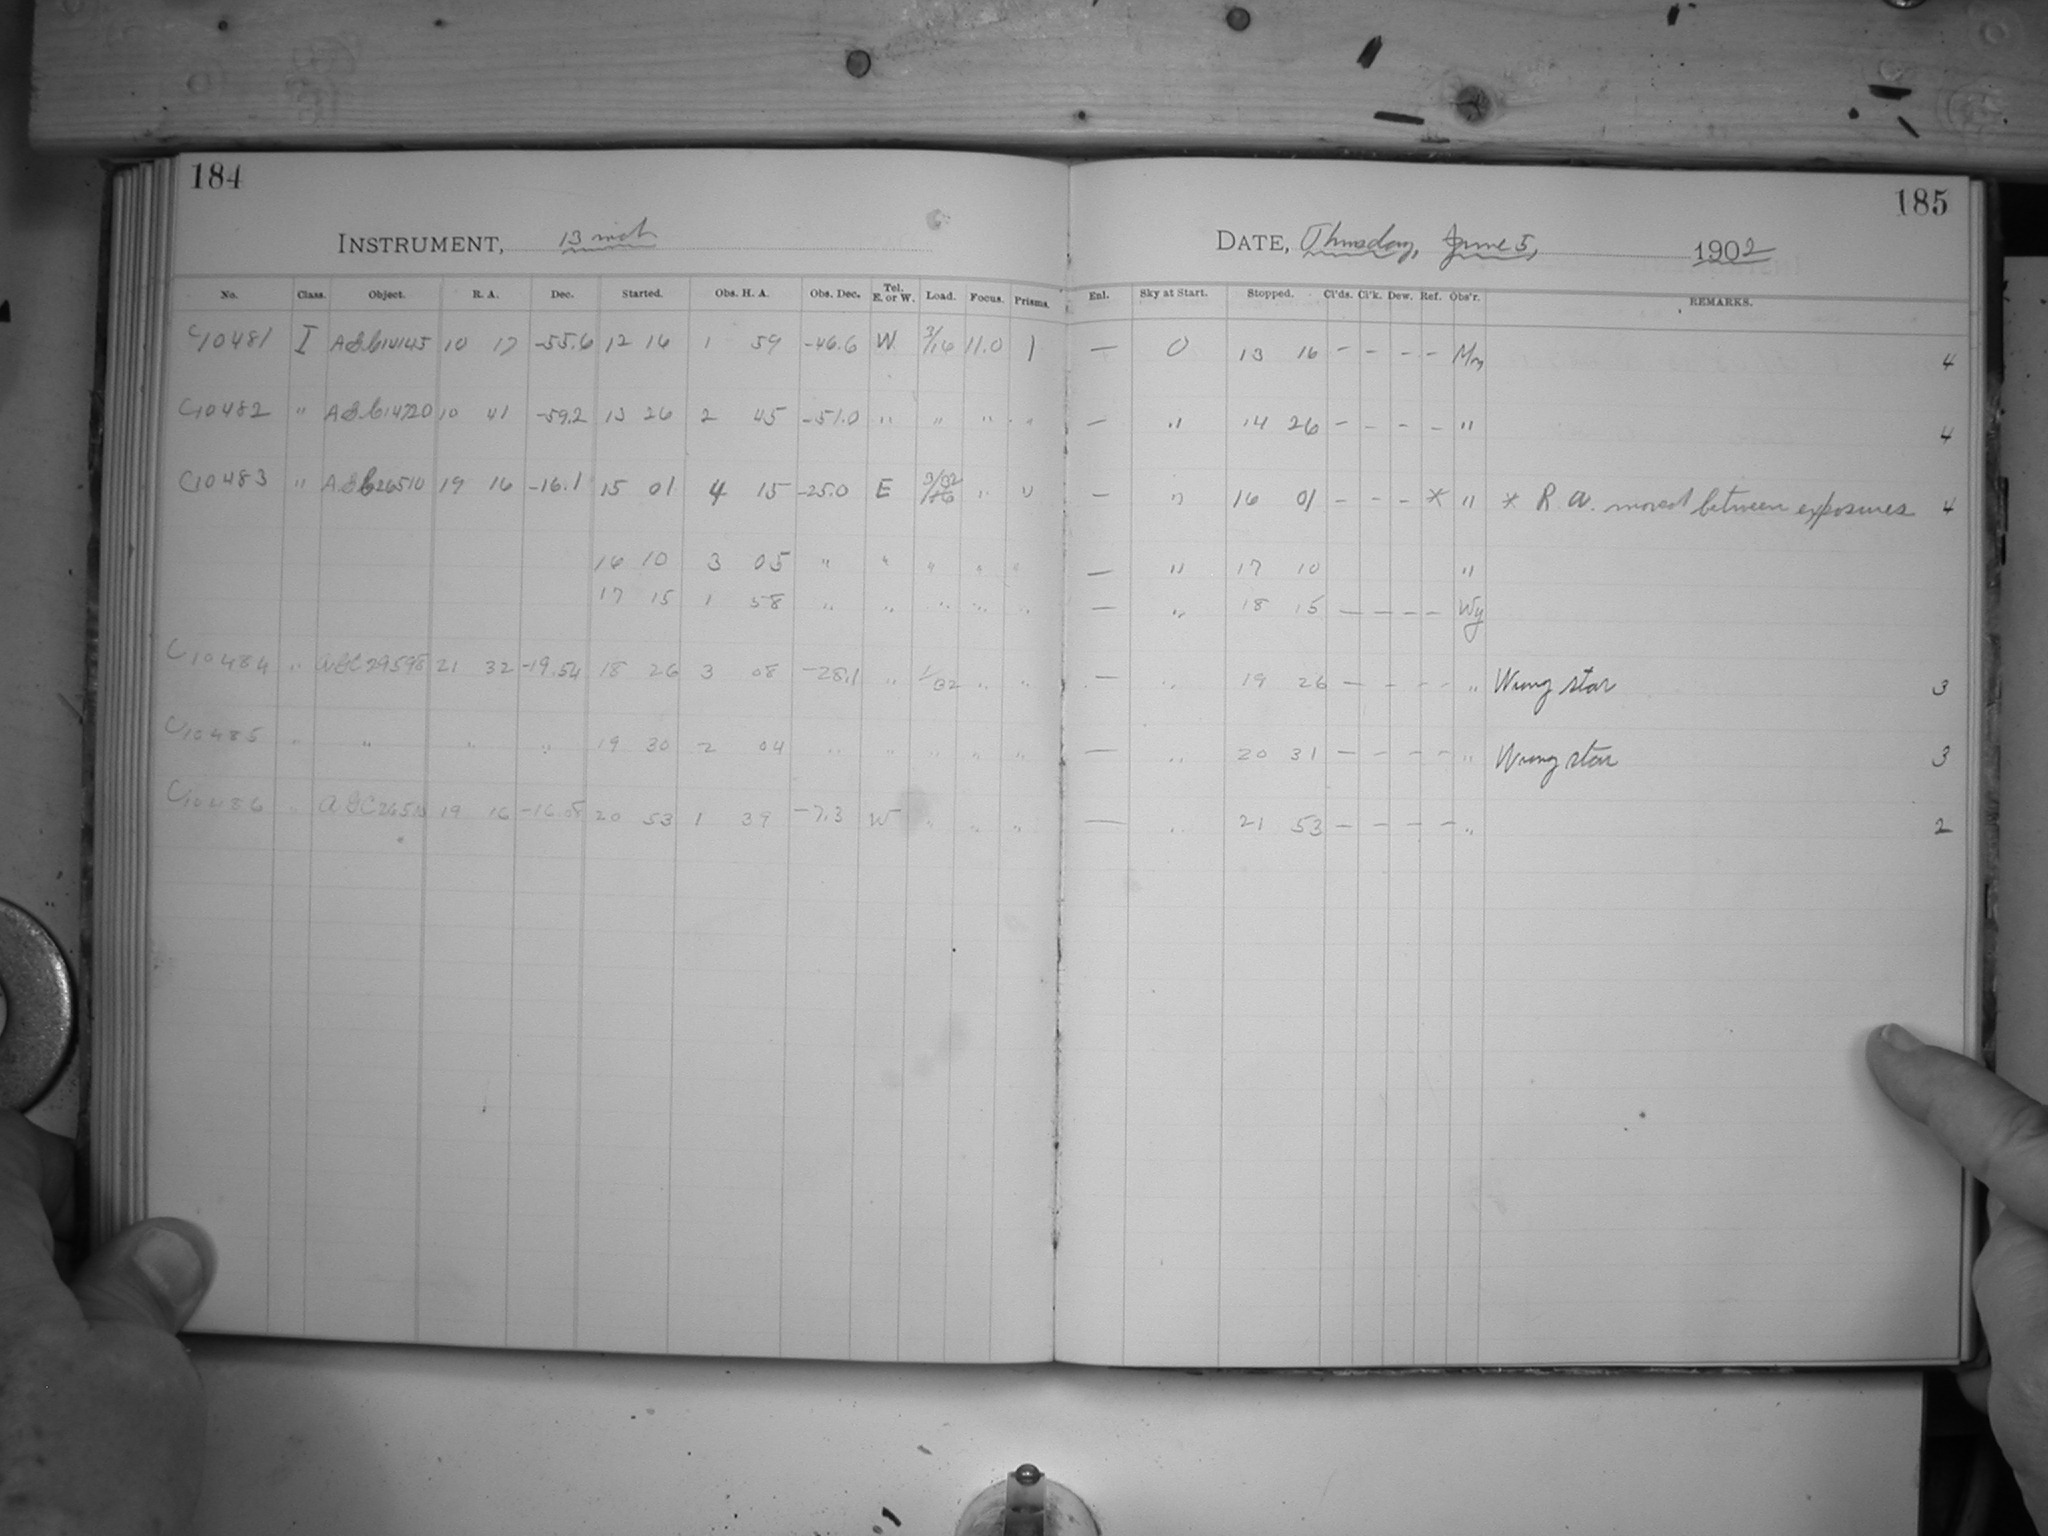 184
INSTRUMENT, 13 inch
No. Class. Object. R. A. Dec. Started. Obs. H. A. Obs. Dec. Tel. E. or W. Load. Focus. Prisms.
C10481 I AGC14145 10 17 -55.6 12 16 1 59 -46.6 W 3/16 11.0 1
C10482 " AGC14720 10 41 -59.2 13 26 2 45 -51.0 " " " "
C10483 " AGC26510 19 16 -16.1 15 01 4 15 -25.0 E 3/32 " "
16 10 3 05 " " " " "
17 15 1 58 " " " " "
C10484 " AGC29598 21 32 -19.54 18 26 3 08 -28.1 " 1/32 " "
C10485 " " " " 19 30 2 04 " " " " "
C10486 " AGC26510 19 16 -16.08 20 53 1 39 -7.3 W " " "
185
DATE, Thursday, June 5, 1902
Enl. Sky at Start. Stopped. Cl'ds. Cl'k. Dew. Ref. Obs'r. REMARKS.
— 0 13 16 – – – – Mn 4
— " 14 26 – – – – " 4
— " 16 01 – – – * " * R. A. moved between exposures 4
— " 17 10 "
— " 18 15 – – – – Wy
— " 19 26 – – – – " Wrong star 3
— " 20 31 – – – – " Wrong star 3
— " 21 53 – – – – " 2